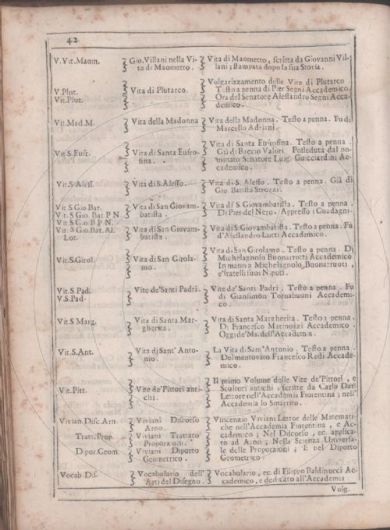 42
V. Vit. Maom. Gio. Villani nella Vi- Vita di Maometto, scritta da Giovanni Vil-
ta di Maometto. lani, stampata dopo la sua Storia.
Volgarizzamento delle Vite di Plutarco
V. Plut. Vita di Plutarco. Testo a penna di Pier Segni Accademico.
Vit. Plut. Ora del Senatore Alessandro Segni Acca-
demico.
Vit. Mad. M. Vita della Madonna Vita della Madonna. Testo a penna. Fu di
Marcello Adriani.
Vita di Santa Eufrosina. Testo a penna.
Vit. S. Eufr. Vita di Santa Eufro- Già di Baccio Valori. Posseduta dal no-
sina. minato Senatore Luigi Guicciardini Ac-
cademico.
Vit. S. Aless. Vita di S. Alesso. Vita di S. Alesso. Testo a penna. Già di
Gio. Batista Strozzi.
Vit. S. Gio. Bat. Vita di San Giovam- Vita di S. Giovambatista. Testo a penna.
Vit. S. Gio. Bat. P. N. batista. Di Pier del Nero. Appresso i Guadagni.
Vit. S. Gio. Bat. P. N.
Vit. S. Gio. Bat. Al. Vita di San Giovam- Vita di S. Giovambatista. Testo a penna. Fu
batista. d'Alessandro Accademico.
Vit. S. Girol. Vita di San Girola- Vita di San Girolamo. Testo a penna. Di
mo. Michelagnolo Buonarroti Accademico
In mano a Michelagnolo, Buonarroti,
e fratelli suoi Nipoti.
Vit. S. Pad. Vite de' Santi Padri. Vite de' Santi Padri. Testo a penna. Fu
V. S. Pad. di Giansimon Tornabuoni Accademi-
co.
Vit. S. Marg. Vita di Santa Mar- Vita di Santa Margherita. Testo a penna.
gherita. D. Francesco Accademico
Oggi de' dell'Accademia.
Vit. S. Ant. Vita di Sant' Anto- La Vita di Sant'Antonio. Testo a penna.
nio. Del mentovato Francesco Redi Accade-
mico.
Il primo Volume delle Vite de' Pittori, e
Vite Pitt. Vite de' Pittori an- Scultori antichi, scritte da Carlo Dati
tichi. Lettore nell'Accademia Fiorentina; nell'
Accademia lo Smarrito.
Vivian. Disc. Arn. Viviani Discorso Vincenzio Viviani Lettor delle Matemati-
Arno. che nell'Accademia Fiorentina, e Ac-
Tratt. Prop. Viviani Trattato cademico; Nel Discorso, ec. applica-
Proporzioni. to ad Arno; Nella Scienza Universa-
Dipor. Geom. Viviani Diporto le delle Proporzioni; E nel Diporto
Geometrico. Geometrico.
Vocab. Dis. Vocabolario dell' Vocabolario, ec. di Filippo Baldinucci Ac-
Arti del Disegno. cademico, e dedicato all'Accademia
Volg.